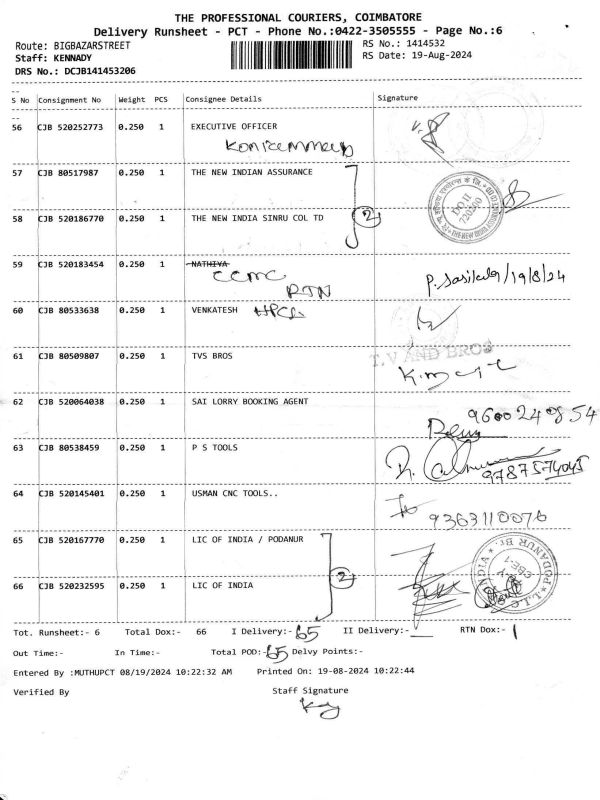 THE PROFESSIONAL COURIERS, COIMBATORE
Delivery Runsheet - PCT - Phone No.:0422-3505555 - Page No.:6
Route: BIGBAZARSTREET
RS No.: 1414532
Staff: KENNADY
RS Date: 19-Aug-2024
DRS No.: DCJB141453206
S No Consignment No Weight PCS Consignee Details Signature
56 CJB 520252773 0.250 1 EXECUTIVE OFFICER
57 CJB 80517987 0.250 1 THE NEW INDIAN ASSURANCE
58 CJB 520186770 0.250 1 THE NEW INDIA SINRU COL TD
2
DO II
720400
59 CJB 520183454 0.250 1 NATHIYA
CCMC
RTN
P. Sasikala/19/8/24
60 CJB 80533638 0.250 1 VENKATESH
61 CJB 80509807 0.250 1 TVS BROS
T.V AND BROS
62 CJB 520064038 0.250 1 SAI LORRY BOOKING AGENT
63 CJB 80538459 0.250 1 P S TOOLS
9787574045
64 CJB 520145401 0.250 1 USMAN CNC TOOLS..
9363110076
65 CJB 520167770 0.250 1 LIC OF INDIA / PODANUR
66 CJB 520232595 0.250 1 LIC OF INDIA
2
PODANUR Br.
Tot. Runsheet:- 6 Total Dox:- 66 I Delivery:- 65 II Delivery:- RTN Dox:- 1
Out Time:- In Time:- Total POD:- 65 Delvy Points:-
Entered By :MUTHUPCT 08/19/2024 10:22:32 AM Printed On: 19-08-2024 10:22:44
Verified By Staff Signature